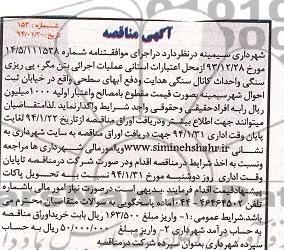 شماره : ۱۵۳
تاریخ : ۹۴/۰۱/۲۰
آگهی مناقصه
شهرداری سیمینه درنظردارد دراجرای موافقتنامه شماره ۱۴/۵/۱۱۱۵۳۸
مورخ ۹۳/۱۲/۲۸ ازمحل اعتبارات استانی عملیات اجرائی بتن مگر ، پی ریزی
سنگی واحداث کانال سنگی هدایت ودفع آبهای سطحی واقع در خیابان ثبت
احوال شهرسیمینه بصورت قیمت مقطوع بامصالح واعتبار اولیه ۱۰۰۰میلیون
ریال رابه افرادحقیقی وحقوقی واجد شرایط واگذارنماید .لذامتقاضیان
میتوانند جهت اطلاع بیشتر ودریافت اوراق مناقصه ازتاریخ ۹۴/۱/۲۲ لغایت
پایان وقت اداری ۹۴/۱/۳۱ جهت دریافت اوراق مناقصه به سایت شهرداری به
نشانی www.siminehshahr.ir وبه امورمالی شهرداری ها مراجعه
ونسبت به اخذ شرایط درمناقصه اقدام ودر صورت شرکت درمناقصه تاپایان
وقت اداری روز دوشنبه مورخ ۹۴/۱/۳۱ نسبت به تحویل پاکات
پیشنهادقیمت اقدام فرمایند . بدیهی است درصورت نیاز امور مالی باشماره
تلفن ۴۶۴۶۴۵۰۳-۰۴۴ آماده پاسخگویی به سوالات متقاضیان محترم می
باشد.شرایط عمومی :۱- واریز مبلغ ۱۶۳/۵۰۰ ریال بابت خریداوراق مناقصه
به حساب درآمد شهرداری ۲- واریز مبلغ ۵۰/۰۰۰/۰۰۰ ریال به حساب
سپرده شهرداری بعنوان سپرده شرکت درمناقصه